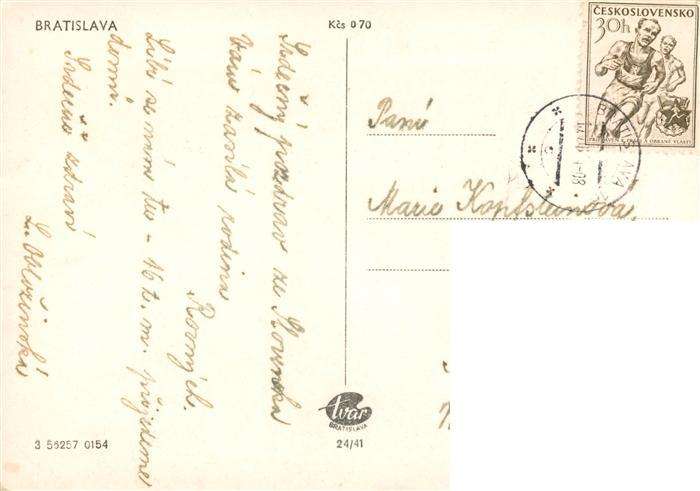 BRATISLAVA
Kčs 0·70
ČESKOSLOVENSKO
30h
BRATISLAVA
Srdečný pozdrav ze Slovenska
Vám zasílá rodina
Rovných.
Líbí se nám tu - 16 t. m. přijedeme
domů.
Srdečně zdraví
Paní
Marie
tvar
BRATISLAVA
24/41
3 56257 0154